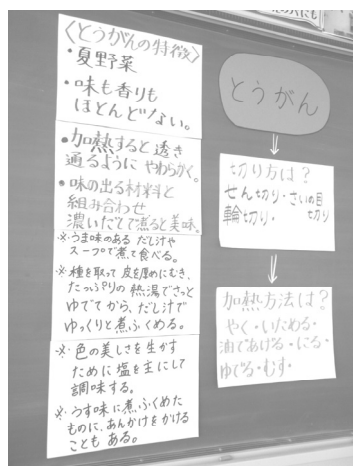 〈とうがんの特徴〉
・夏野菜
・味も香りも
ほとんどない。
・加熱すると透き
通るように やわらかく。
・味の出る材料と
組み合わせ
濃いだしで煮ると美味。
※・うま味のある だし汁や
スープで煮て食べる。
※・種を取って 皮を厚めにむき、
たっぷりの 熱湯でさっと
ゆでてから、だし汁で
ゆっくりと煮ふくめる。
※・色の美しさを生かす
ために 塩を主にして
調味する。
※・うす味に煮ふくめた
ものに、あんかけをかける
ことも ある。
とうがん
切り方は?
せん切り・さいの目
輪切り・ 切り
加熱方法は?
やく・いためる・
油であげる・にる・
ゆでる・むす・